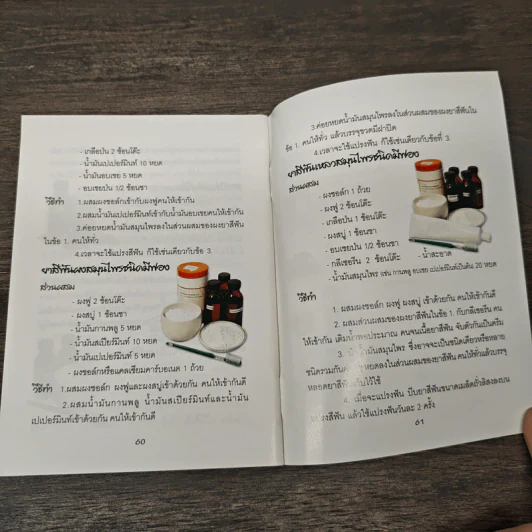 - เกลือป่น 2 ช้อนโต๊ะ
- น้ำมันเปเปอร์มินท์ 10 หยด
- น้ำมันอบเชย 5 หยด
- อบเชยป่น 1/2 ช้อนชา
วิธีทำ 1.ผสมผงชอล์กเข้ากับผงฟูคนให้เข้ากัน
2.ผสมน้ำมันเปเปอร์มินท์เข้ากับน้ำมันอบเชยคนให้เข้ากัน
3.ค่อยหยดน้ำมันสมุนไพรลงในส่วนผสมของผงยาสีฟัน
ในข้อ 1. คนให้ทั่ว
4.เวลาจะใช้แปรงสีฟัน ก็ใช้เช่นเดียวกับข้อ 3.
ยาสีฟันผงสมุนไพรชนิดมีฟอง
ส่วนผสม
- ผงฟู 2 ช้อนโต๊ะ
- ผงสบู่ 1 ช้อนชา
- น้ำมันกานพลู 5 หยด
- น้ำมันสเปียร์มินท์ 10 หยด
- น้ำมันเปเปอร์มินท์ 5 หยด
- ผงชอล์กหรือแคลเซียมคาร์บอเนต 1 ถ้วย
วิธีทำ 1.ผสมผงชอล์ก ผงฟูและผงสบู่เข้าด้วยกัน คนให้เข้ากันดี
2.ผสมน้ำมันกานพลู น้ำมันสเปียร์มินท์และน้ำมัน
เปเปอร์มินท์เข้าด้วยกัน คนให้เข้ากันดี
60
3.ค่อยหยดน้ำมันสมุนไพรลงในส่วนผสมของผงยาสีฟันใน
ข้อ 1. คนให้ทั่ว แล้วบรรจุขวดมีฝาปิด
4.เวลาจะใช้แปรงฟัน ก็ใช้เช่นเดียวกับข้อที่ 3.
ยาสีฟันเหลวสมุนไพรชนิดมีฟอง
ส่วนผสม
- ผงชอล์ก 1 ถ้วย
- ผงฟู 2 ช้อนโต๊ะ
- เกลือป่น 1 ช้อนโต๊ะ
- ผงสบู่ 1 ช้อนชา
- อบเชยป่น 1/2 ช้อนชา
- กลีเซอรีน 2 ช้อนโต๊ะ - น้ำสะอาด
- น้ำมันสมุนไพร เช่น กานพลู อบเชย เปเปอร์มินท์เป็นต้น 20 หยด
วิธีทำ
1. ผสมผงชอล์ก ผงฟู ผงสบู่ เข้าด้วยกัน คนให้เข้ากันดี
2. ผสมส่วนผสมของผงยาสีฟันในข้อ 1. กับกลีเซอรีน คน
ให้เข้ากัน เติมน้ำพอประมาณ คนจนเนื้อยาสีฟัน จับตัวกันเป็นครีม
3. น้ำมันสมุนไพร ซึ่งอาจจะเป็นชนิดเดียวหรือหลาย
ชนิดรวมกัน หยดลงในส่วนผสมของยาสีฟัน คนให้ทั่วแล้วบรรจุ
หลอดยาสีฟัน ไว้ใช้
4. เมื่อจะแปรงฟัน บีบยาสีฟันขนาดเมล็ดถั่วลิสงลงบน
แปรงสีฟัน แล้วใช้แปรงฟันวันละ 2 ครั้ง
61